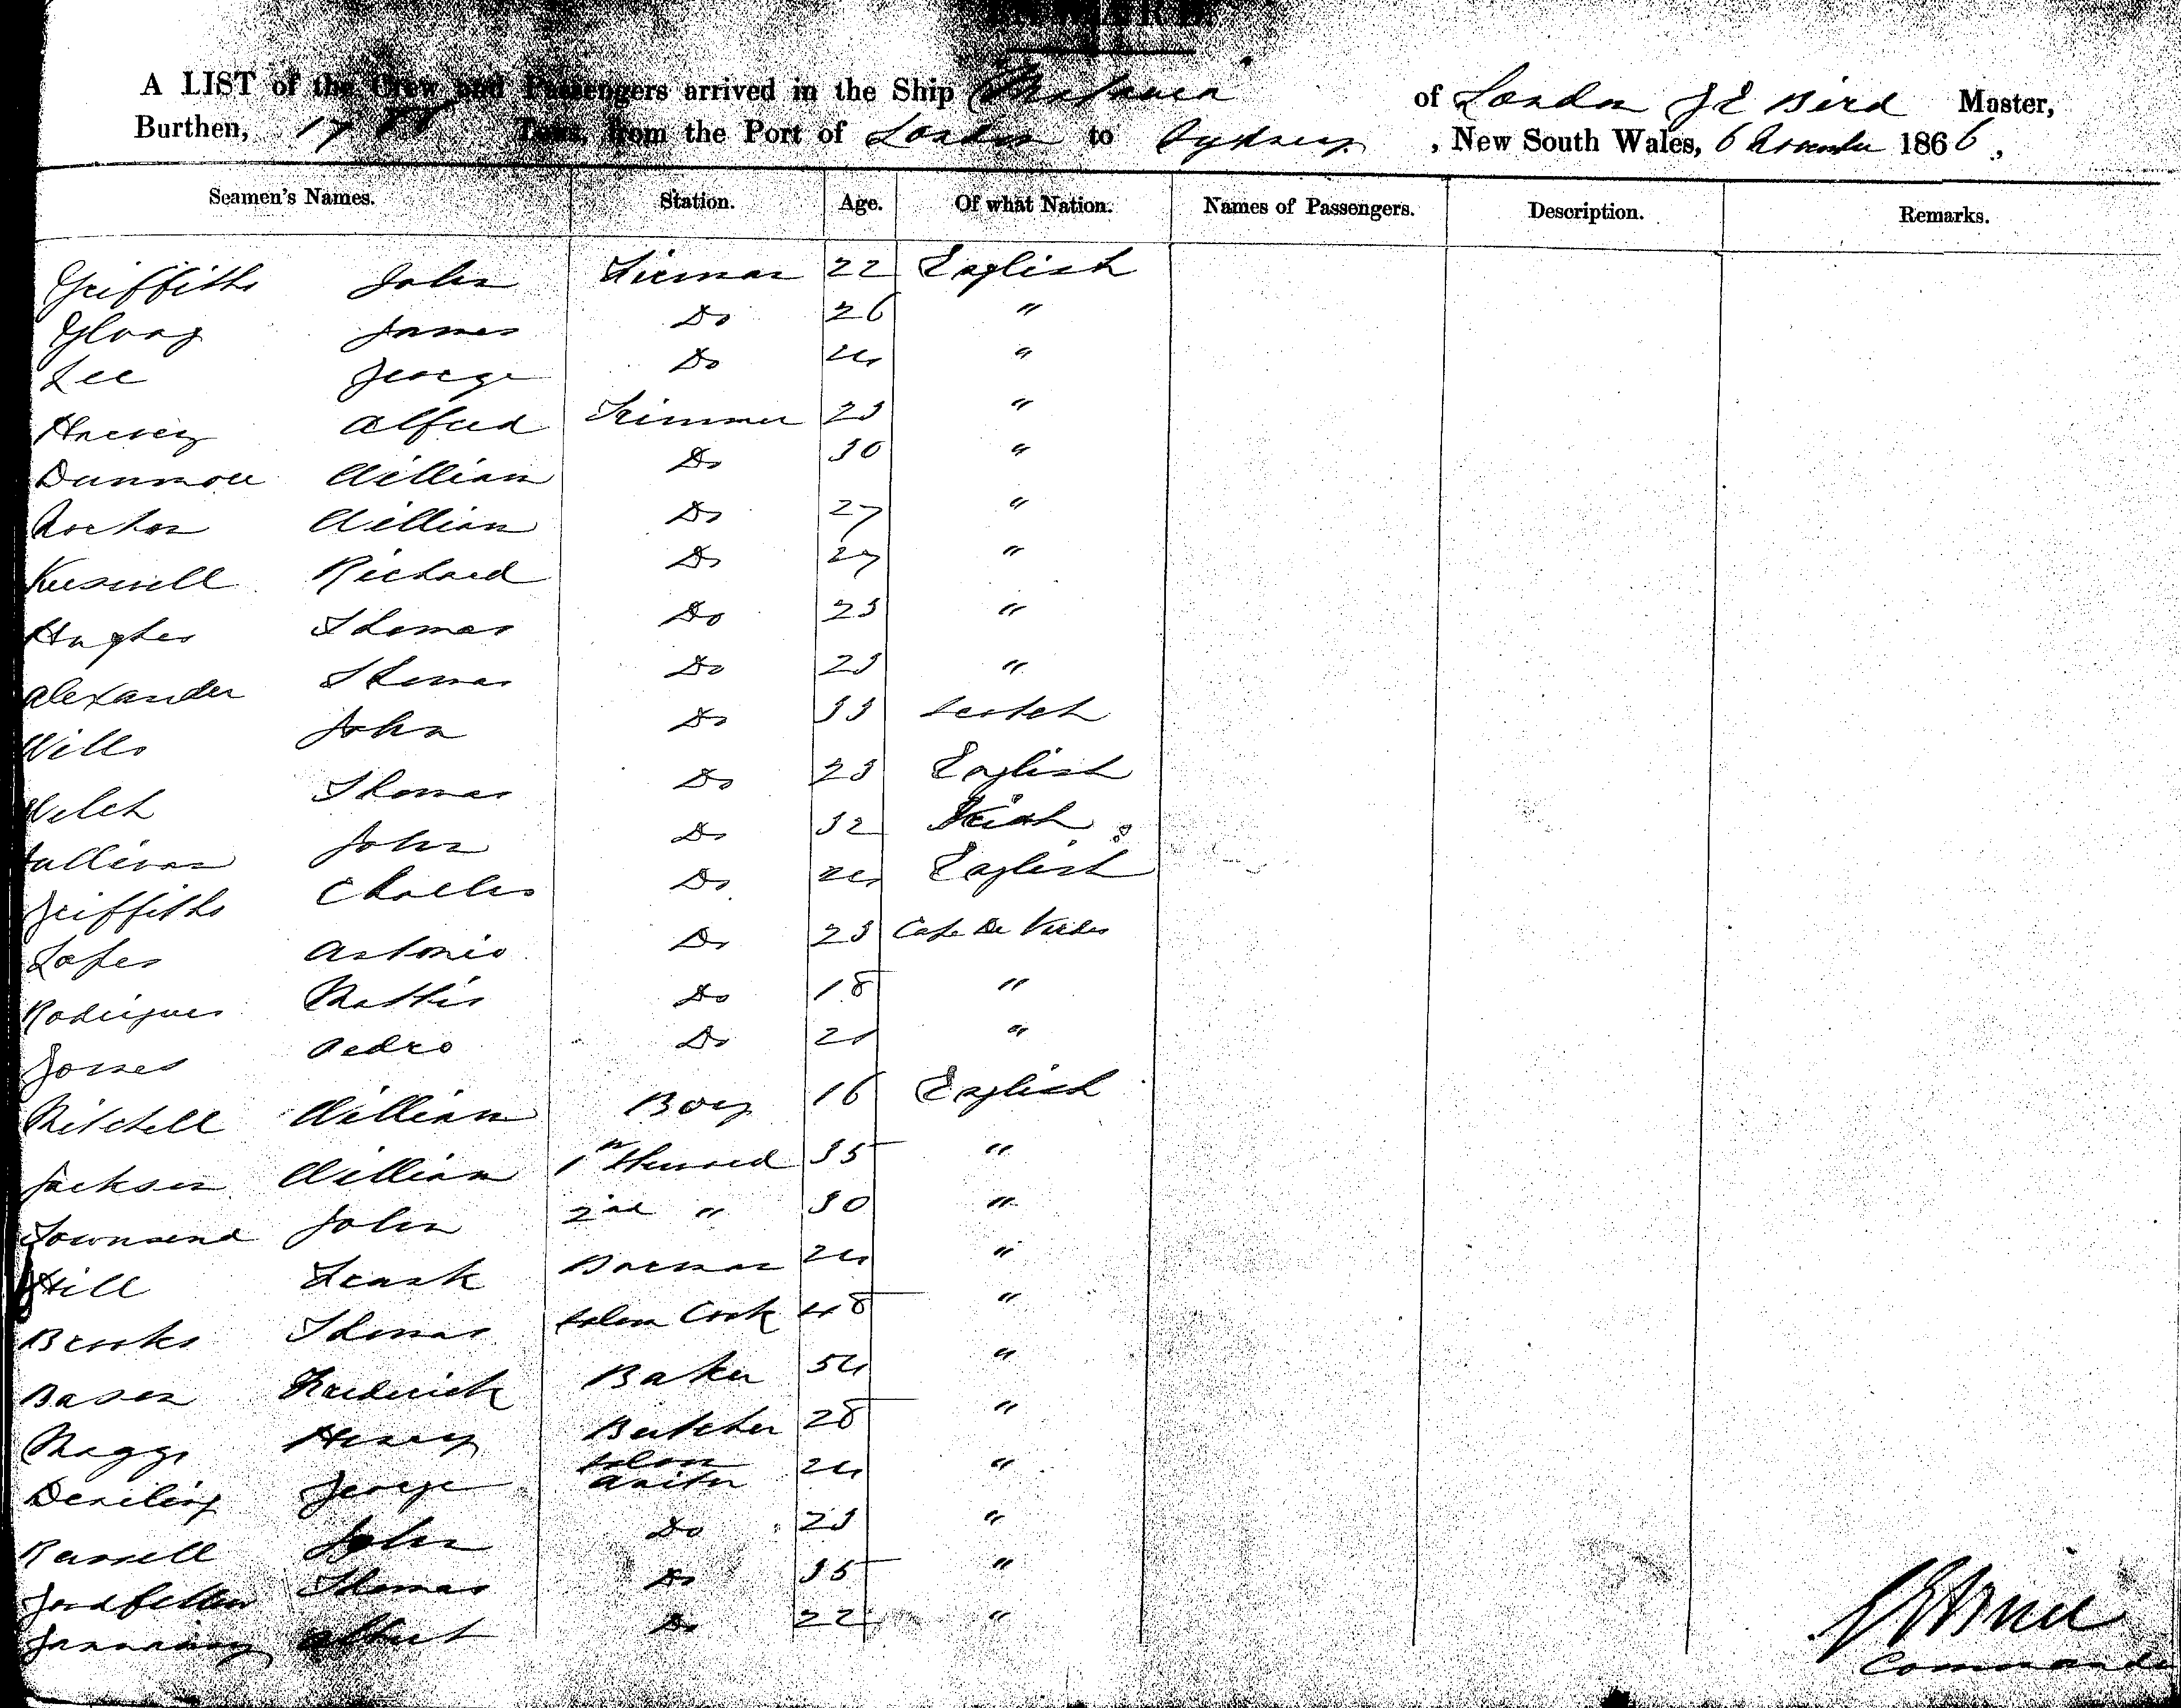 A LIST of the Crew and Passengers arrived in the Ship of London J E Bird Master,
Burthen, 17 Tons, from the Port of London to Sydney, New South Wales, 6 November 1866,
Seamen's Names. Station. Age. Of what Nation. Names of Passengers. Description. Remarks.
Griffiths John Fireman 22 English
Gloag James Do 26 "
Lee George Do 24 "
Harvey Alfred Trimmer 23 "
Dunmore William Do 30 "
Norton William Do 27 "
Richard Do 27 "
Hughes Thomas Do 23 "
Alexander Thomas Do 23 "
Wills John Do 33 Scotch
Welch Thomas Do 23 English
Sullivan John Do 32 Irish
Griffiths Charles Do 24 English
Lopes Antonio Do 23 Cape De Verdes
Rodrigues Do 18 "
Pedro Do 21 "
Mitchell William Boy 16 English
Jackson William 1st Steward 35 "
Townsend John 2nd " 30 "
Hill Frank Barman 24 "
Brooks Thomas Saloon Cook 48 "
Frederick Baker 54 "
Maggs Henry Butcher 28 "
George Saloon Waiter 24 "
Russell John Do 23 "
Thomas Do 35 "
Albert Do 22 "
Commander